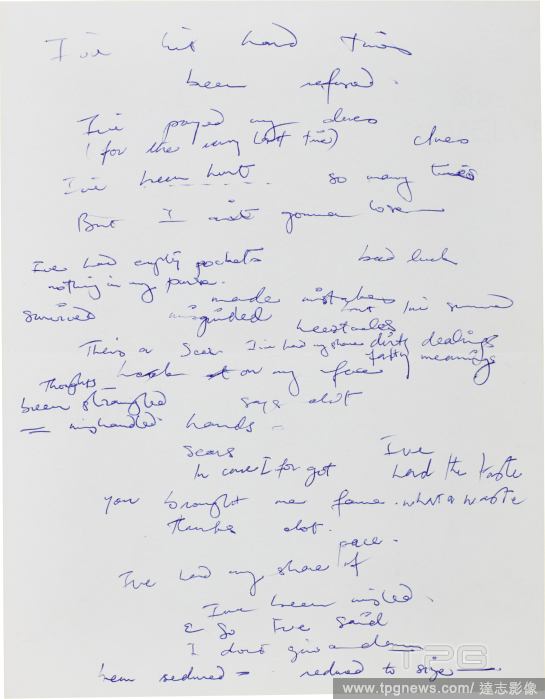 I've hit hard times
been refused.
I've payed my dues
(for the very last time) clues
I've been hurt so many times
But I aint gonna lose
I've had empty pockets bad luck
nothing in my purse.
made mistakes but I've survived
survived misguided
There's a scar I've had my share dirty dealings
Thoughts look at on my face meanings
been strangled says alot
= mishandled hands =
scars I've
In case I forgot had the taste
you brought me fame. what a waste
thanks alot.
pace.
I've had my share of
I've been misled.
& so I've said
I dont give a damn
been seduced = reduced to size
TPG
www.tpgnews.com/達志影像